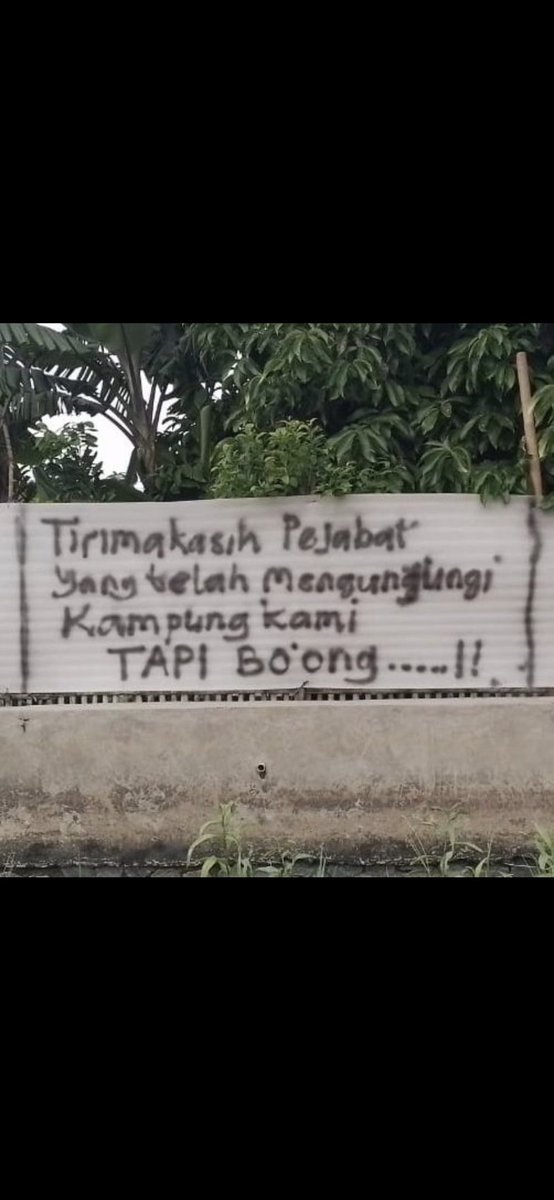 Tirimakasih Pejabat
yang telah mengungjungi
Kampung kami
TAPI Bo'ong.....!!